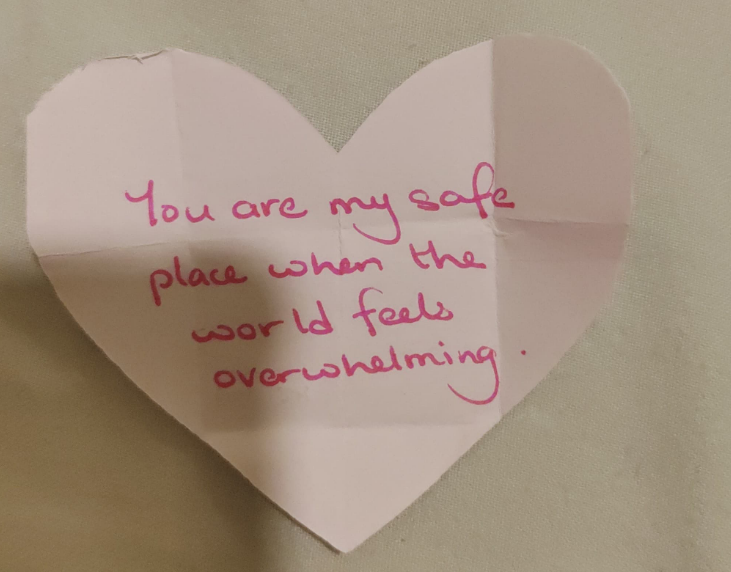 You are my safe
place when the
world feels
overwhelming.